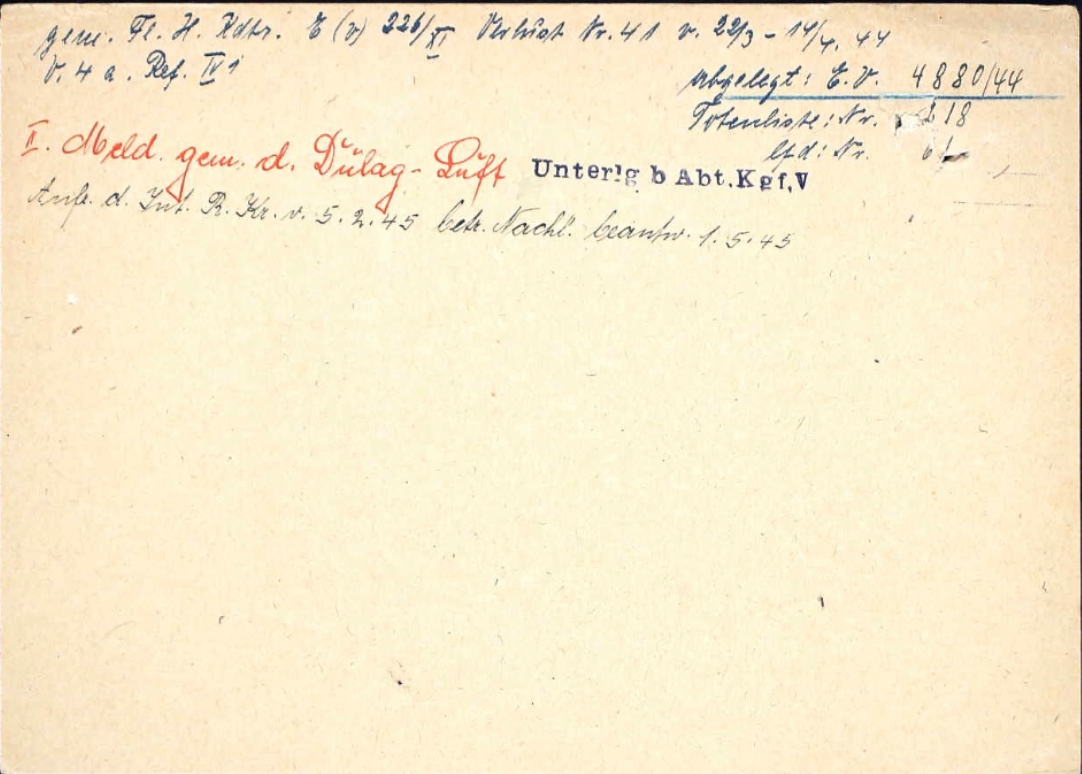 gem. Fl. H. Kdtr. E (v) 226/XI Verlust Nr. 41 v. 22/3 - 14/4. 44
V. 4 a. Ref. IV 1
abgelegt: E.V. 4880/44
Totenliste: Nr. 218
lfd: Nr.
II. Meld. gem. d. Dŭlag-Lŭft
Unterlg b Abt. Kgf. V
Anfr. d. Int. R. Kr. v. 5. 2. 45 betr. Nachl. beantw. 1. 5. 45